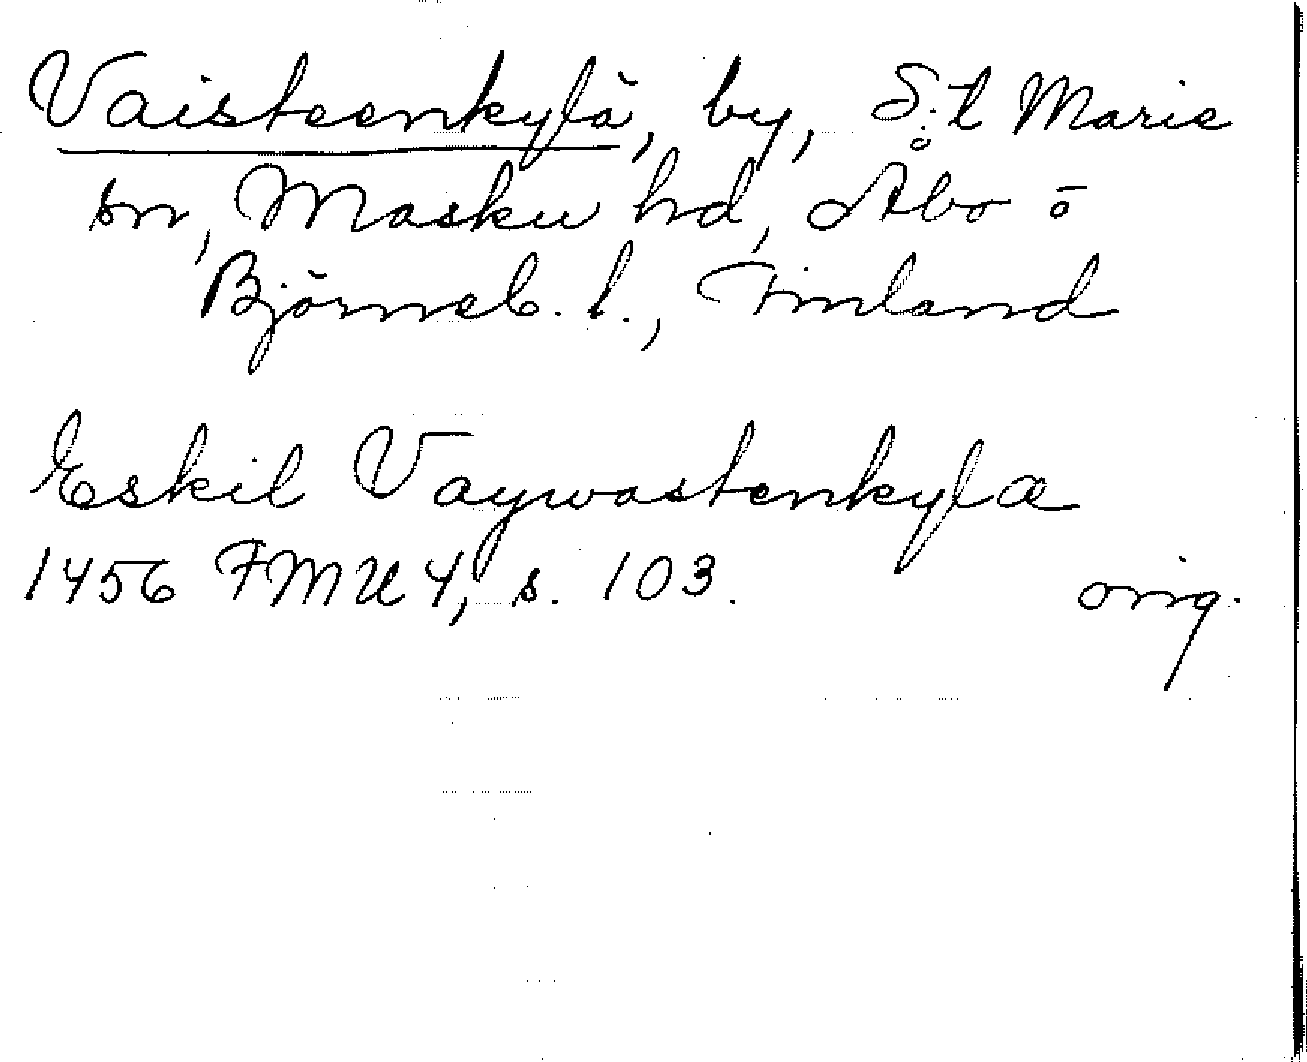 Vaisteenkylä, by, S:t Marie
sn, Masku hd, Åbo o
Björneb. l., Finland
Eskil Vaywastenkylæ
1456 FMU 4, s. 103.
orig.